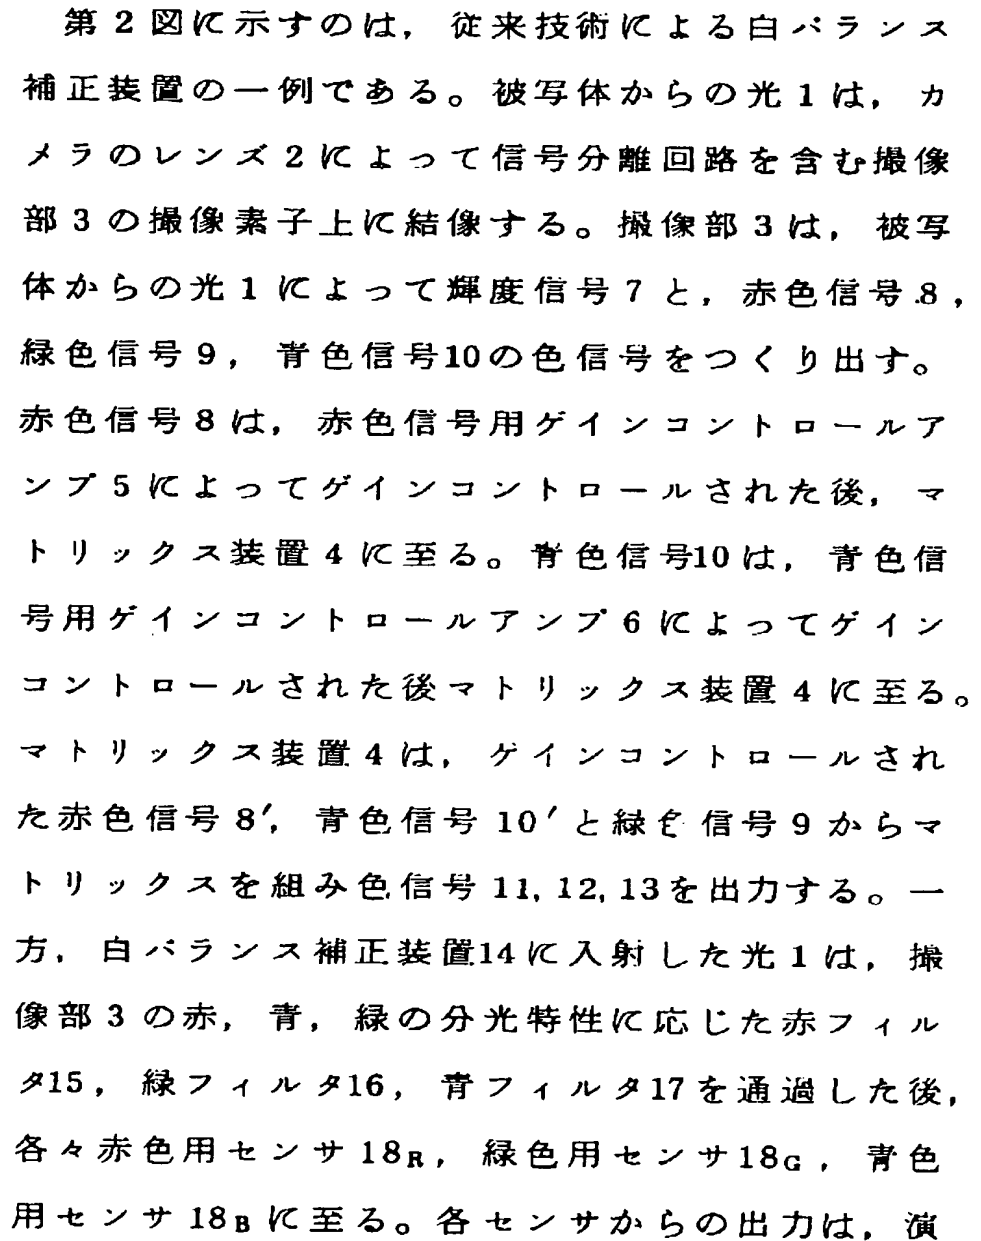 第2図に示すのは，従来技術による白バランス
補正装置の一例である。被写体からの光1は，カ
メラのレンズ2によって信号分離回路を含む撮像
部3の撮像素子上に結像する。撮像部3は，被写
体からの光1によって輝度信号7と，赤色信号8，
緑色信号9，青色信号10の色信号をつくり出す。
赤色信号8は，赤色信号用ゲインコントロールア
ンプ5によってゲインコントロールされた後，マ
トリックス装置4に至る。青色信号10は，青色信
号用ゲインコントロールアンプ6によってゲイン
コントロールされた後マトリックス装置4に至る。
マトリックス装置4は，ゲインコントロールされ
た赤色信号8′，青色信号10′と緑色信号9からマ
トリックスを組み色信号11，12，13を出力する。一
方，白バランス補正装置14に入射した光1は，撮
像部3の赤，青，緑の分光特性に応じた赤フィル
タ15，緑フィルタ16，青フィルタ17を通過した後，
各々赤色用センサ18R，緑色用センサ18G，青色
用センサ18Bに至る。各センサからの出力は，演